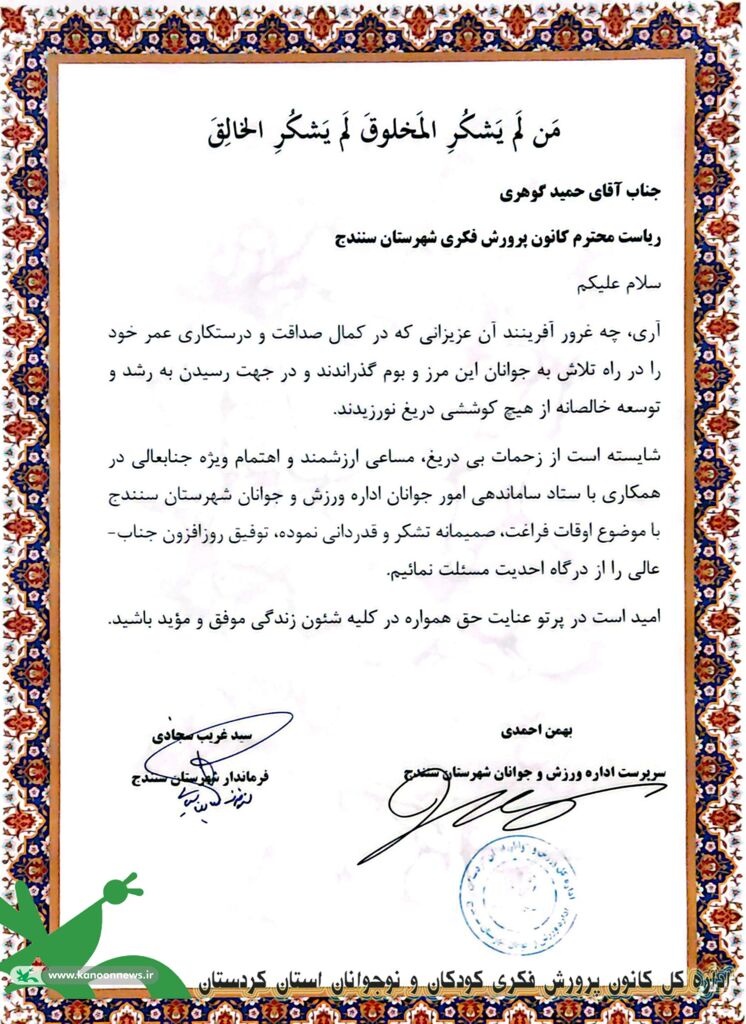 مَن لَم یَشکُرِ المَخلوقَ لَم یَشکُرِ الخالِقَ
جناب آقای حمید گوهری
ریاست محترم کانون پرورش فکری شهرستان سنندج
سلام علیکم
آری، چه غرور آفرینند آن عزیزانی که در کمال صداقت و درستکاری عمر خود
را در راه تلاش به جوانان این مرز و بوم گذراندند و در جهت رسیدن به رشد و
توسعه خالصانه از هیچ کوششی دریغ نورزیدند.
شایسته است از زحمات بی دریغ، مساعی ارزشمند و اهتمام ویژه جنابعالی در
همکاری با ستاد ساماندهی امور جوانان اداره ورزش و جوانان شهرستان سنندج
با موضوع اوقات فراغت، صمیمانه تشکر و قدردانی نموده، توفیق روزافزون جناب-
عالی را از درگاه احدیت مسئلت نمائیم.
امید است در پرتو عنایت حق همواره در کلیه شئون زندگی موفق و مؤید باشید.
بهمن احمدی
سرپرست اداره ورزش و جوانان شهرستان سنندج
سید غریب سجادی
فرماندار شهرستان سنندج
www.kanoonnews.ir
اداره کل کانون پرورش فکری کودکان و نوجوانان استان کردستان